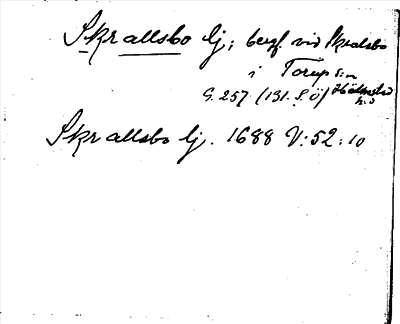 Skrallsbo lj; bergf. vid Skralsbo
i Torup s:n
G. 257 (131. S. Ö) Halmstad h:d
Skrallsbo lj. 1688 V:52:10